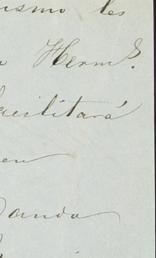 ismo les
Herm.s
acilitará
en
ando